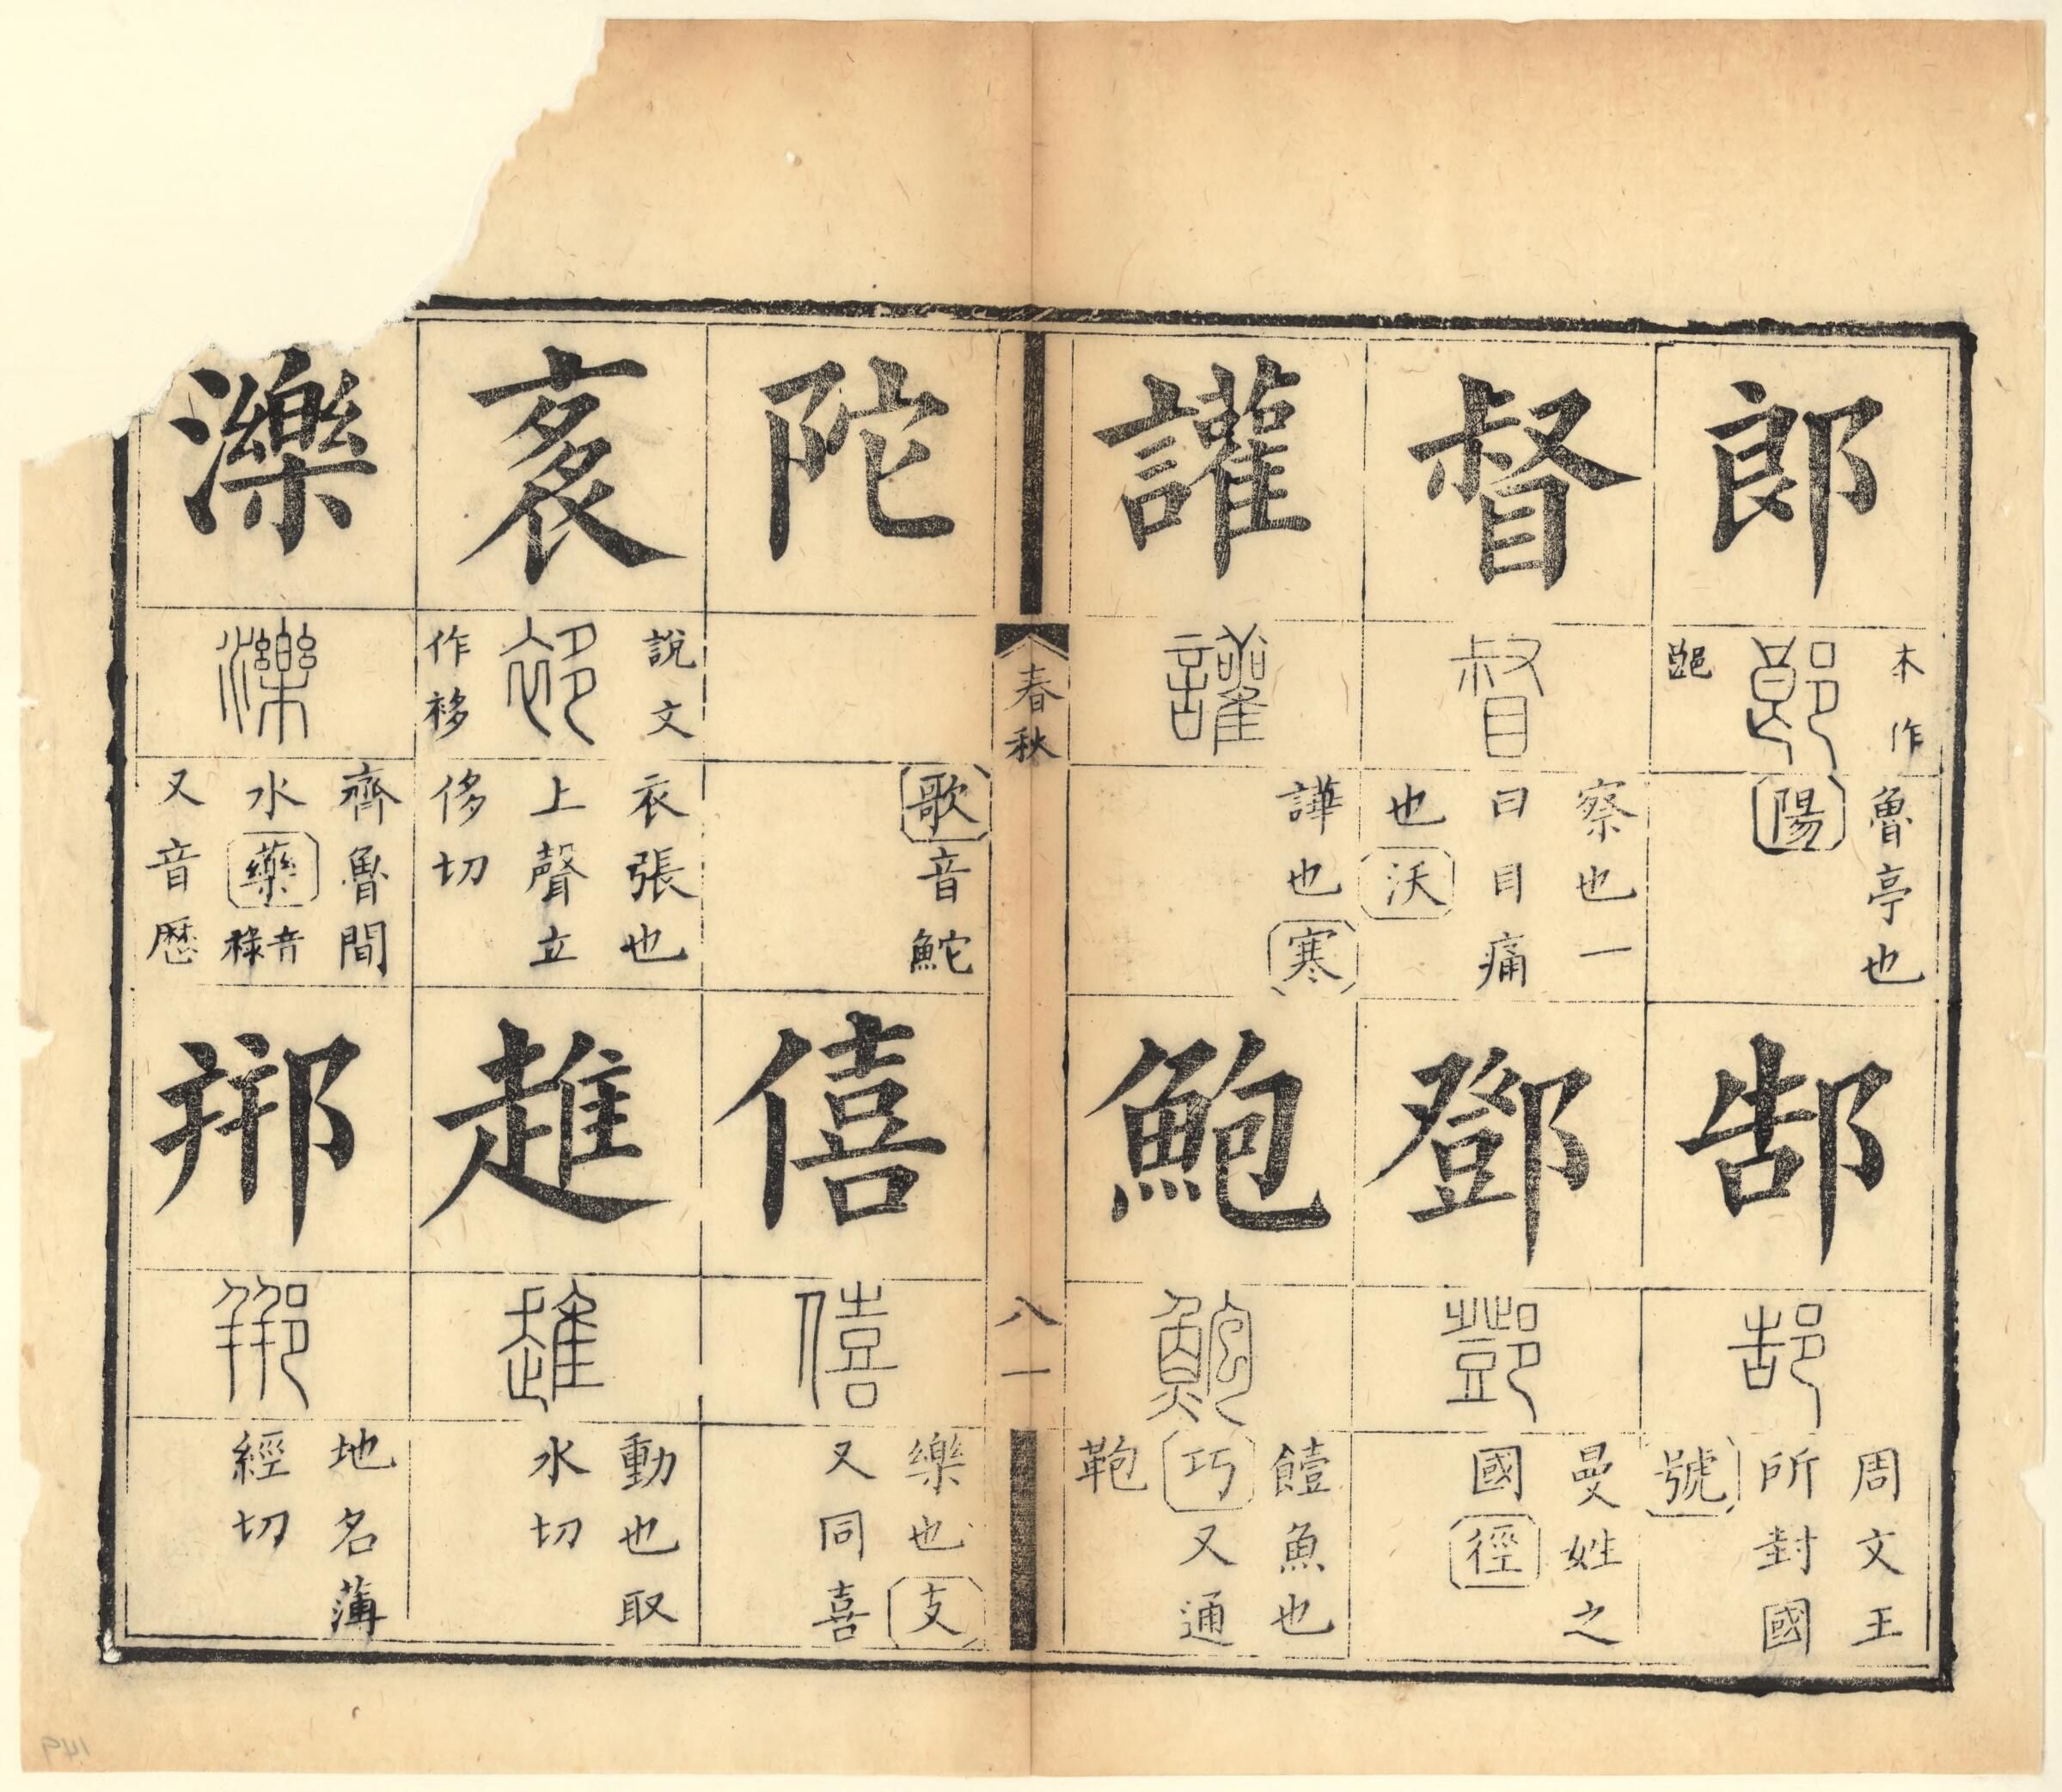 郎
郎
本作
魯亭也
陽
郜
郜
周文王
所封國
號
督
督
察也一
曰目痛
也沃
鄧
鄧
曼姓之
國徑
讙
讙
譁也寒
鮑
鮑
饐魚也
巧又通
鞄
春秋
八一
陀
歌音鮀
僖
僖
樂也支
又同喜
袲
說文
袳
作袳
衣張也
上聲立
侈切
趡
趡
動也取
水切
濼
濼
齊魯間
水藥音祿
又音歷
郱
郱
地名薄
經切